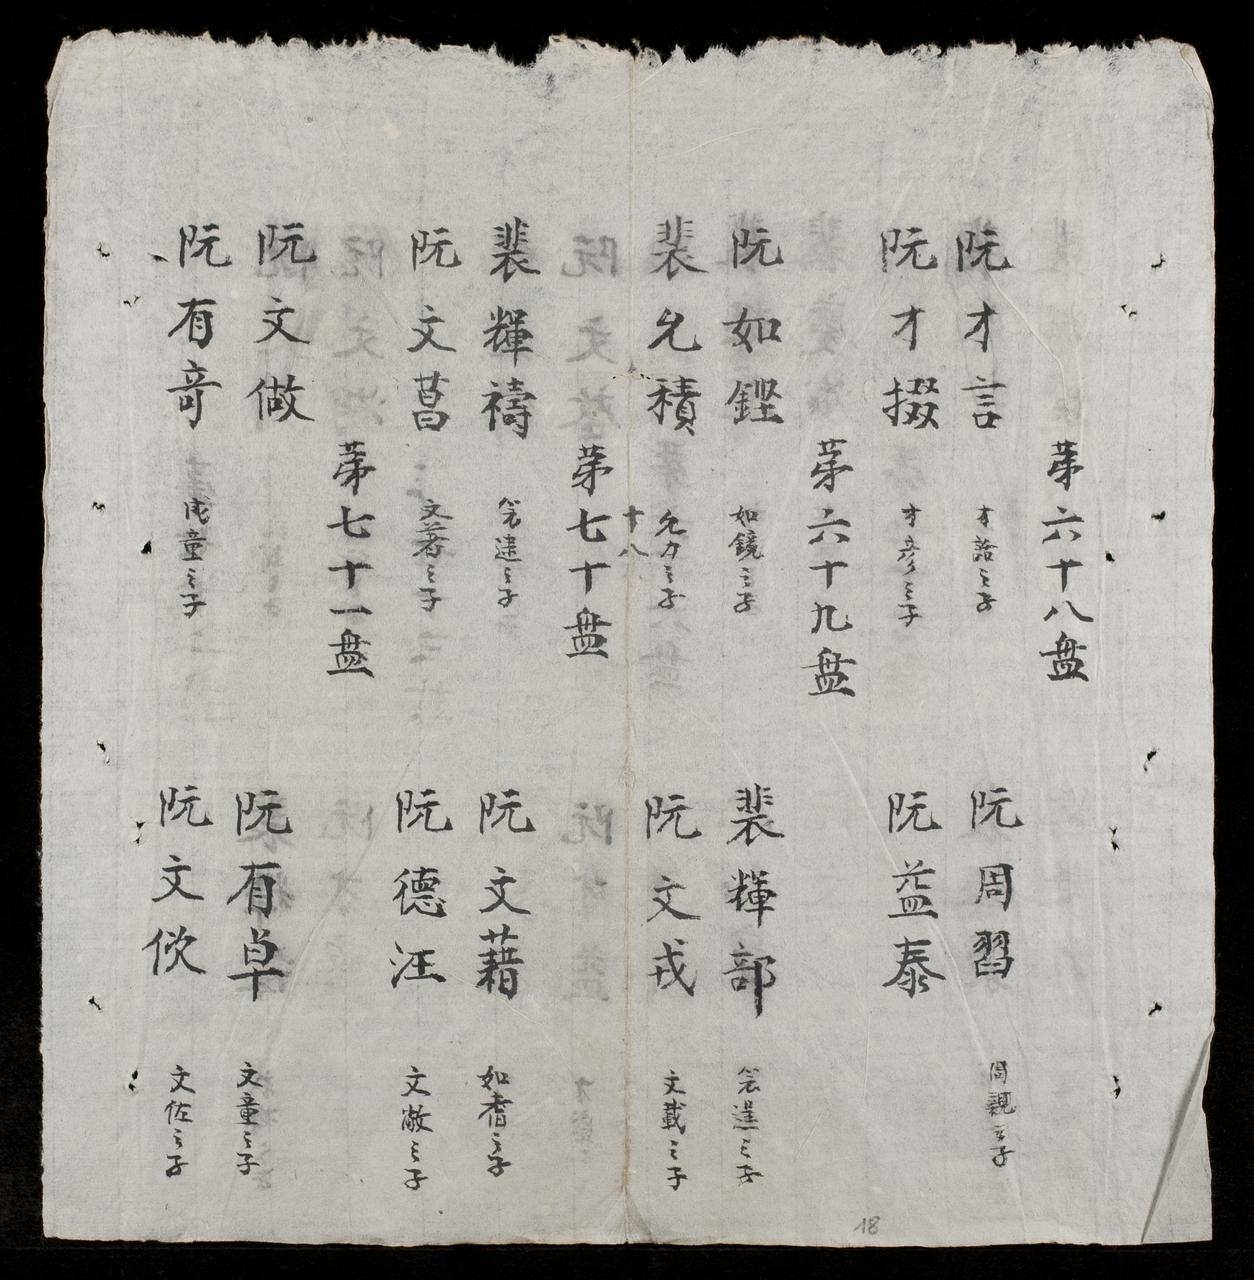 第六十八盘
阮才言 才話之子
阮周習 周親之子
阮才掇 才彦之子
阮益泰
第六十九盘
阮如鏗 如鏡之子
裴輝部 衮達之子
裴允積 允力之子
阮文戎 文載之子
十八
第七十盘
裴輝禱 衮達之子
阮文藉 如耆之子
阮文菖 文著之子
阮德汪 文敞之子
第七十一盘
阮文做
阮有卓 文童之子
阮有竒 成童之子
阮文佽 文佐之子
18